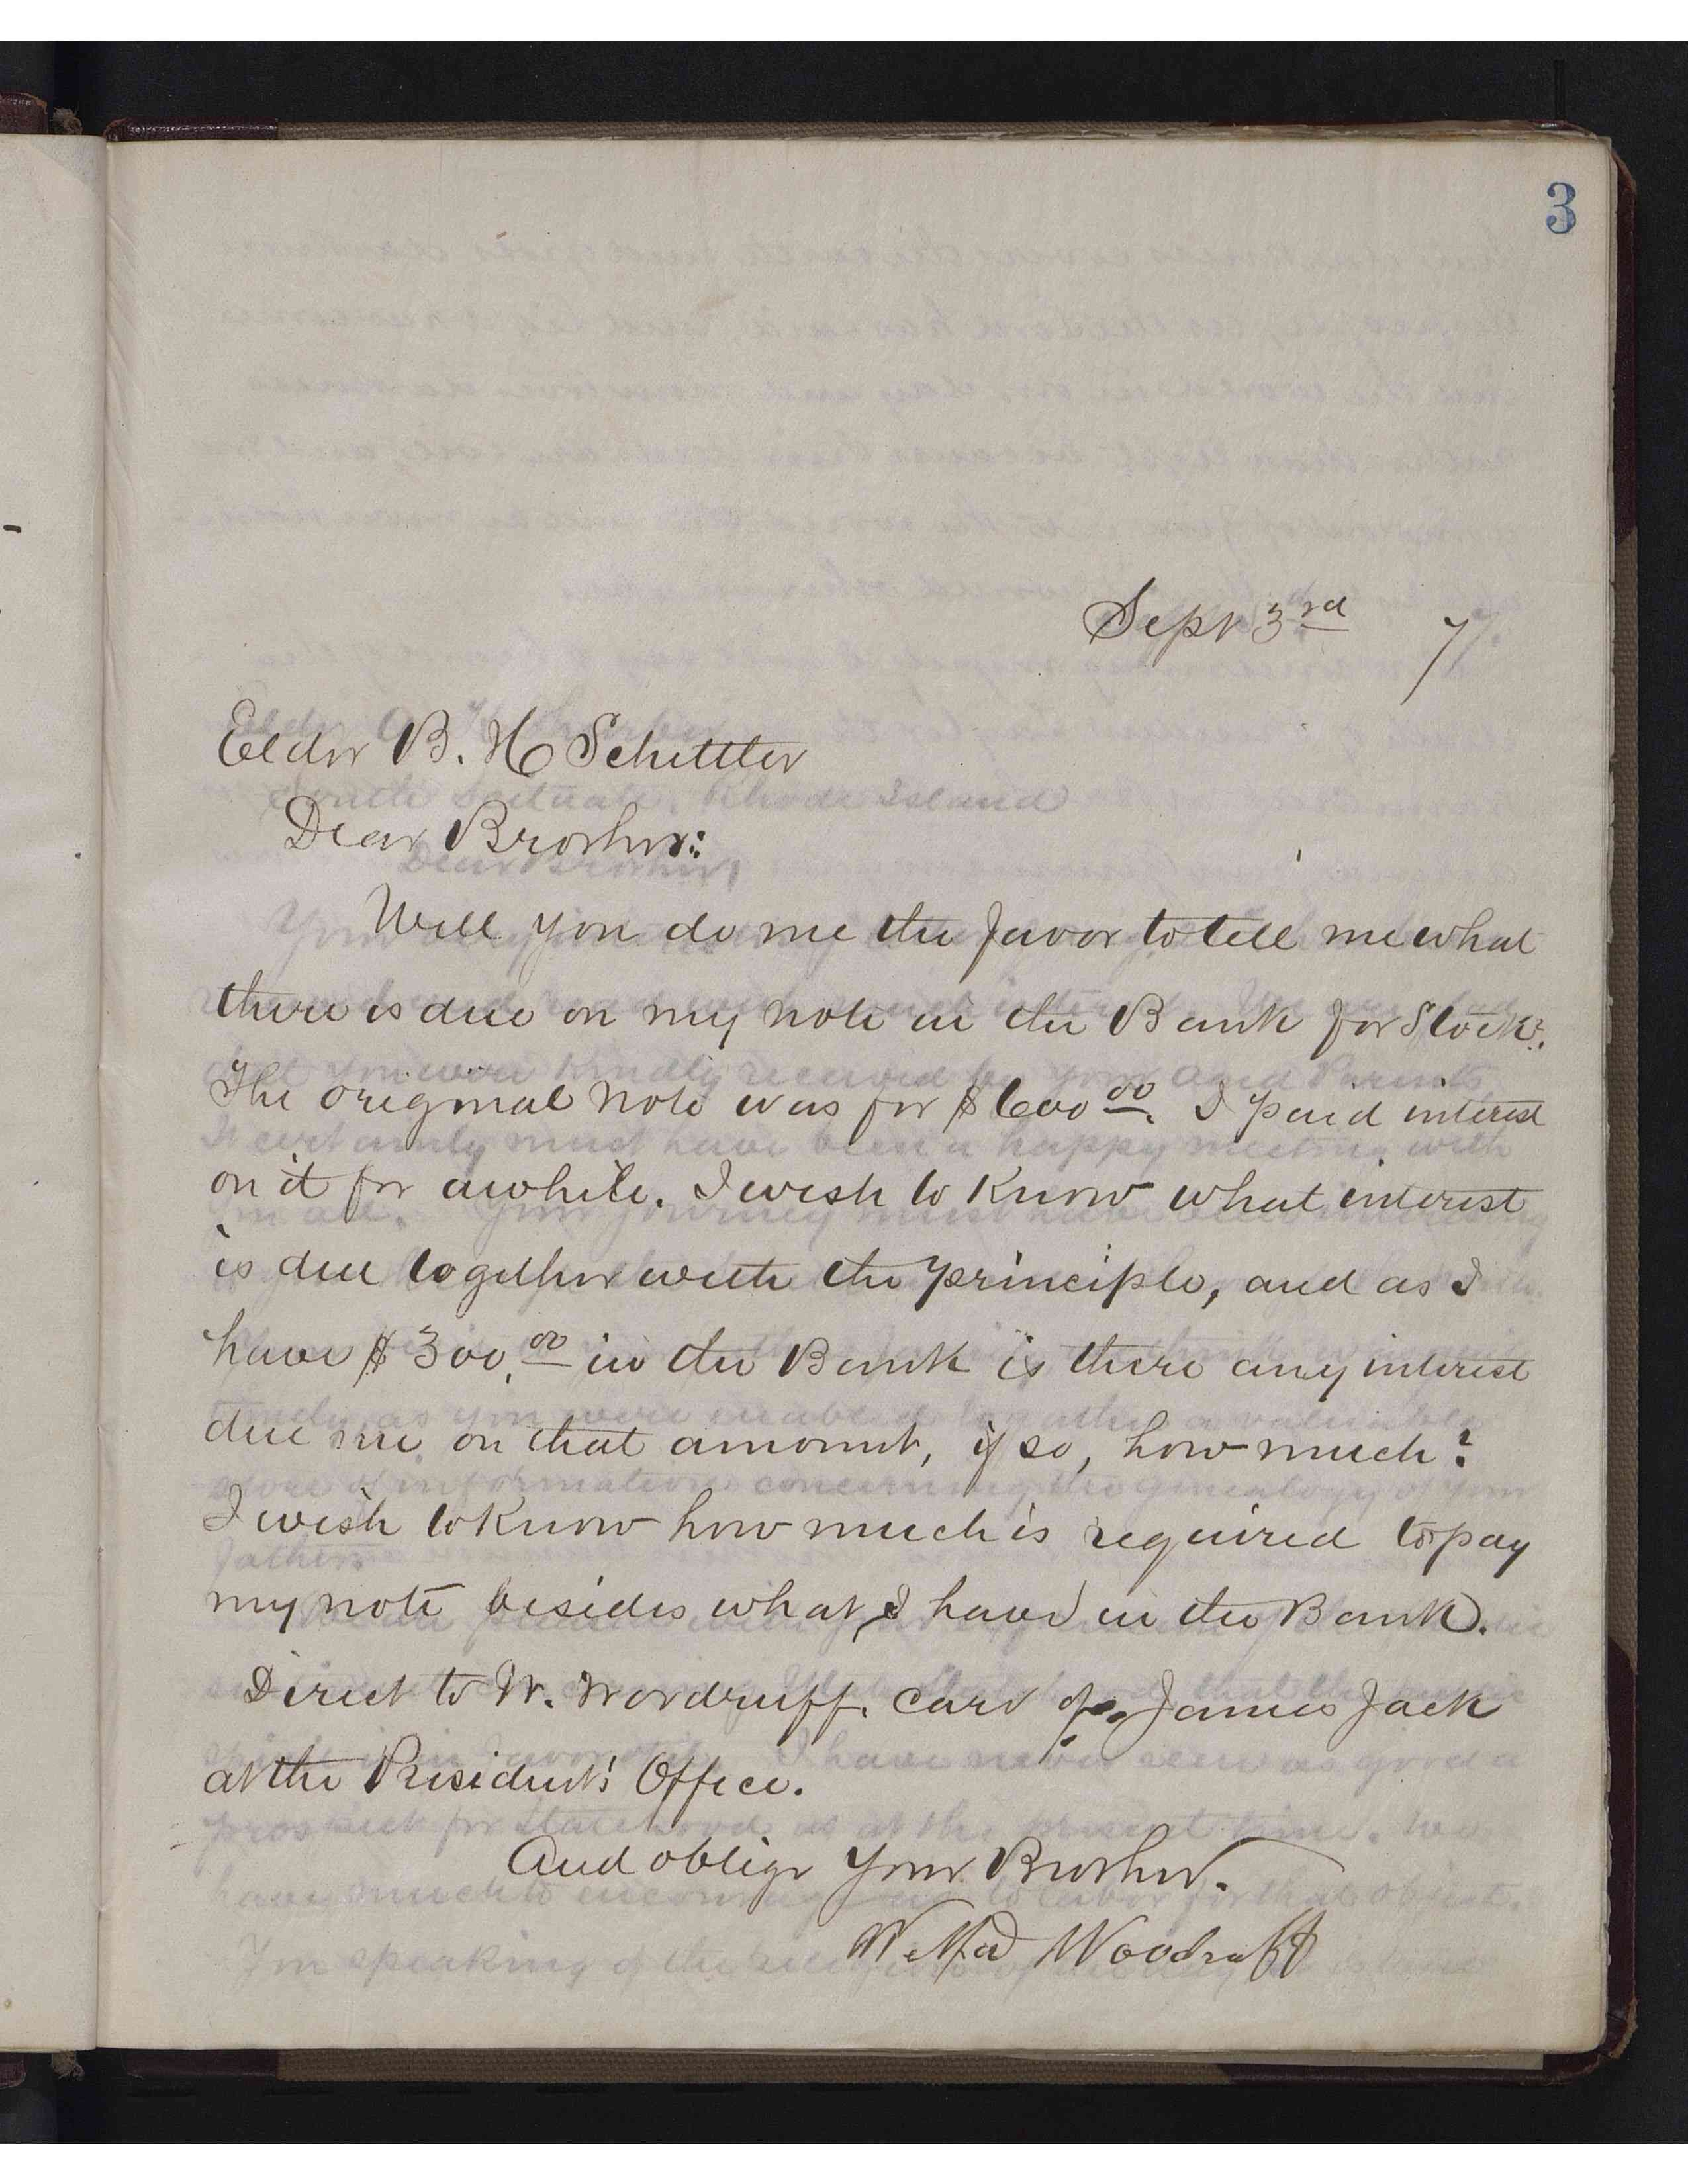 3
Sept 3rd 7
Elder B. H Schettler
Dear Brother:
Will you do me the favor to tell me what
there is due on my note in the Bank for Stock.
The original note was for $600 00. I paid interest
on it for awhile. I wish to know what interest
is due together with the principle, and as I
have $300.00 in the Bank is there any interest
due me on that amount, if so, how much?
I wish to know how much is required to pay
my note besides what I have in the Bank.
Direct to W. Woodruff. care of James Jack
at the President's Office.
And oblige your Brother.
W. Woodruff